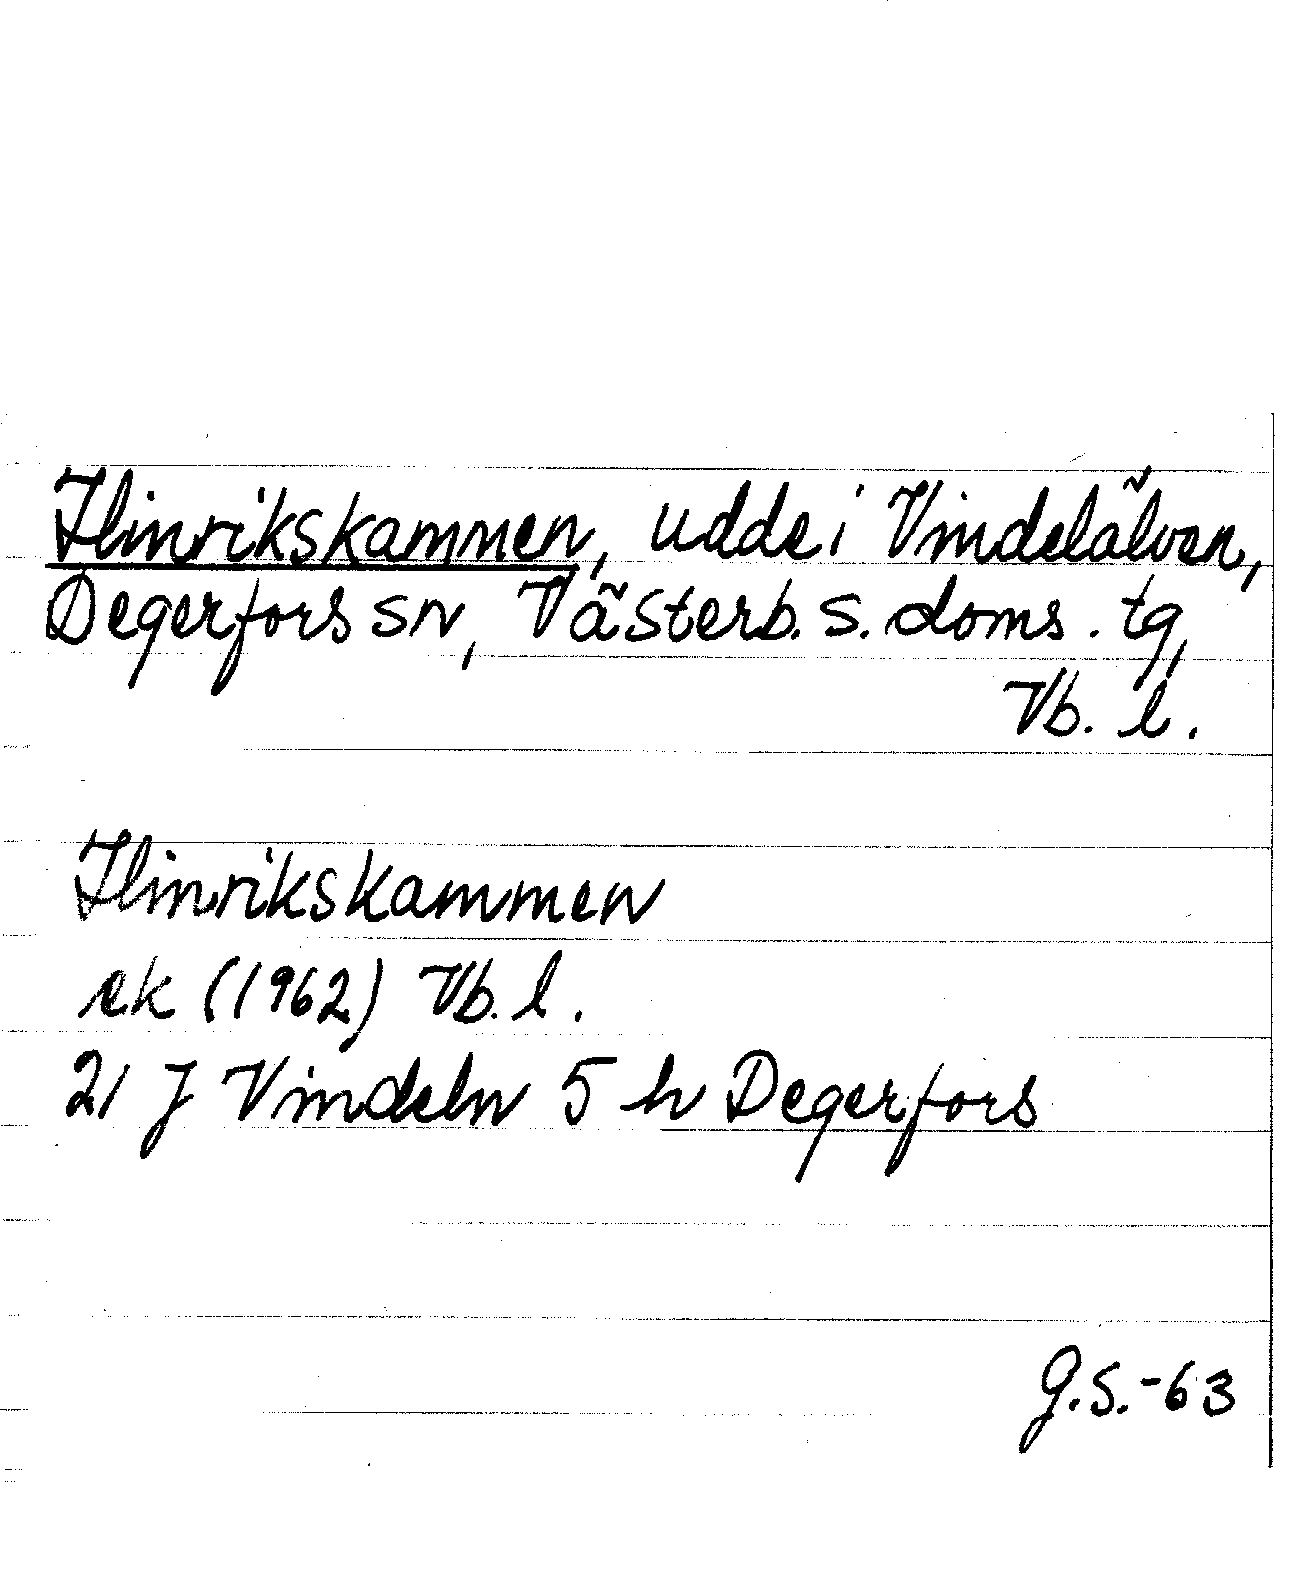 Hinrikskammen, udde i Vindelälven,
Degerfors sn, Västerb. s. doms. tg,
Vb. l.
Hinrikskammen
ek (1962) Vb. l.
21 J Vindeln 5 h Degerfors
G.S.-63